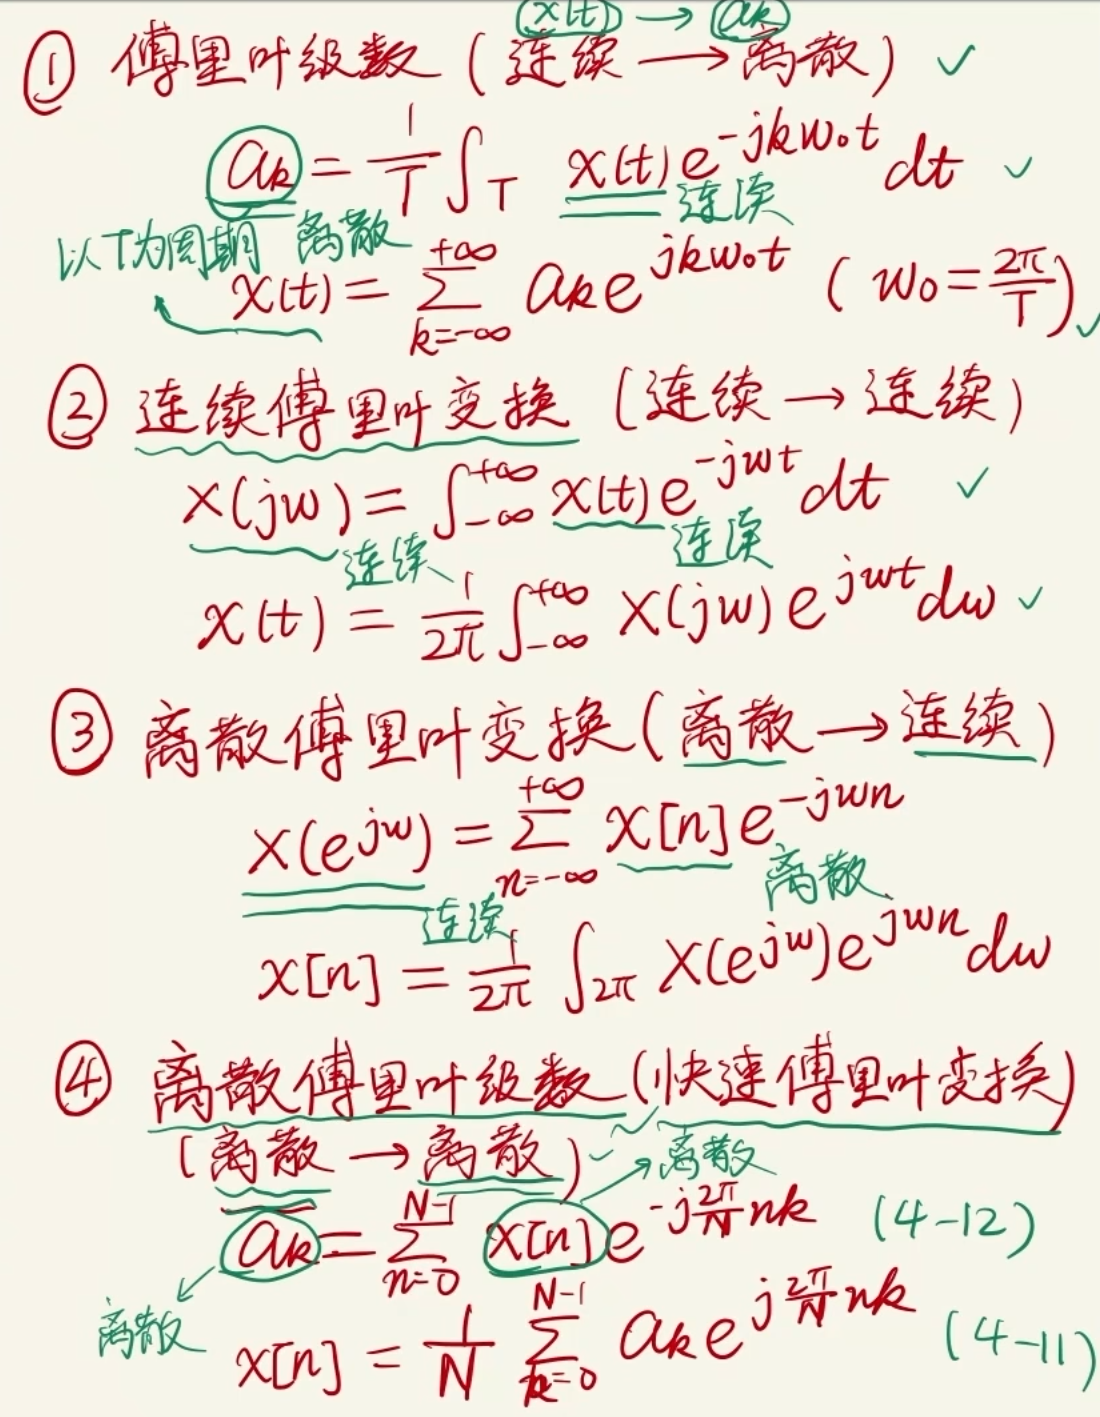 x(t) → ak
① 傅里叶级数 (连续 → 离散) ✓
ak = 1/T ∫T x(t)e^{-jkw₀t} dt ✓
以T为周期 离散 连续
x(t) = Σ_{k=-∞}^{+∞} ak e^{jkw₀t} (w₀ = 2π/T) ✓
② 连续傅里叶变换 (连续 → 连续)
X(jw) = ∫_{-∞}^{+∞} x(t)e^{-jwt} dt ✓
连续 连续
x(t) = 1/2π ∫_{-∞}^{+∞} X(jw) e^{jwt} dw ✓
③ 离散傅里叶变换 (离散 → 连续)
X(e^{jw}) = Σ_{n=-∞}^{+∞} x[n] e^{-jwn}
连续 离散
x[n] = 1/2π ∫_{2π} X(e^{jw})e^{jwn} dw
④ 离散傅里叶级数 (快速傅里叶变换)
(离散 → 离散) → 离散
ak = Σ_{n=0}^{N-1} x[n] e^{-j 2π/N nk} (4-12)
离散
x[n] = 1/N Σ_{k=0}^{N-1} ak e^{j 2π/N nk} (4-11)